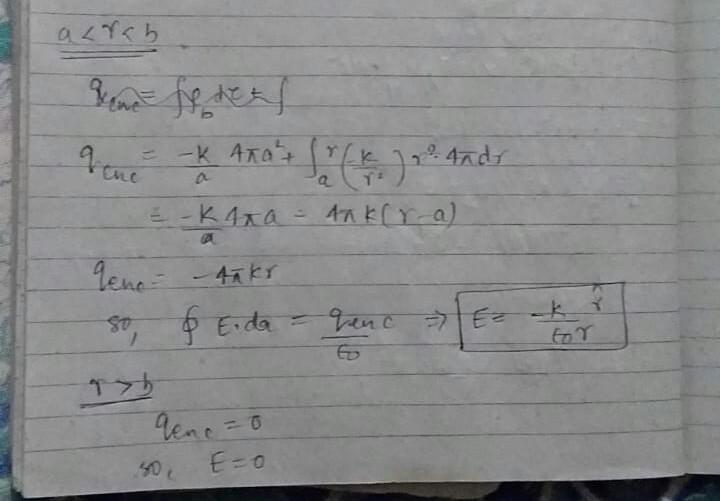 a < r < b
q_enc = ∫ρ_b dτ + ∫
q_enc = -k/a 4πa² + ∫_a^r (-k/r²) r² 4π dr
= -k/a 4πa - 4πk(r-a)
q_enc = -4πkr
so, ∮ E·da = q_enc/ε₀ ⇒ E = -k/ε₀r r̂
r > b
q_enc = 0
so, E = 0